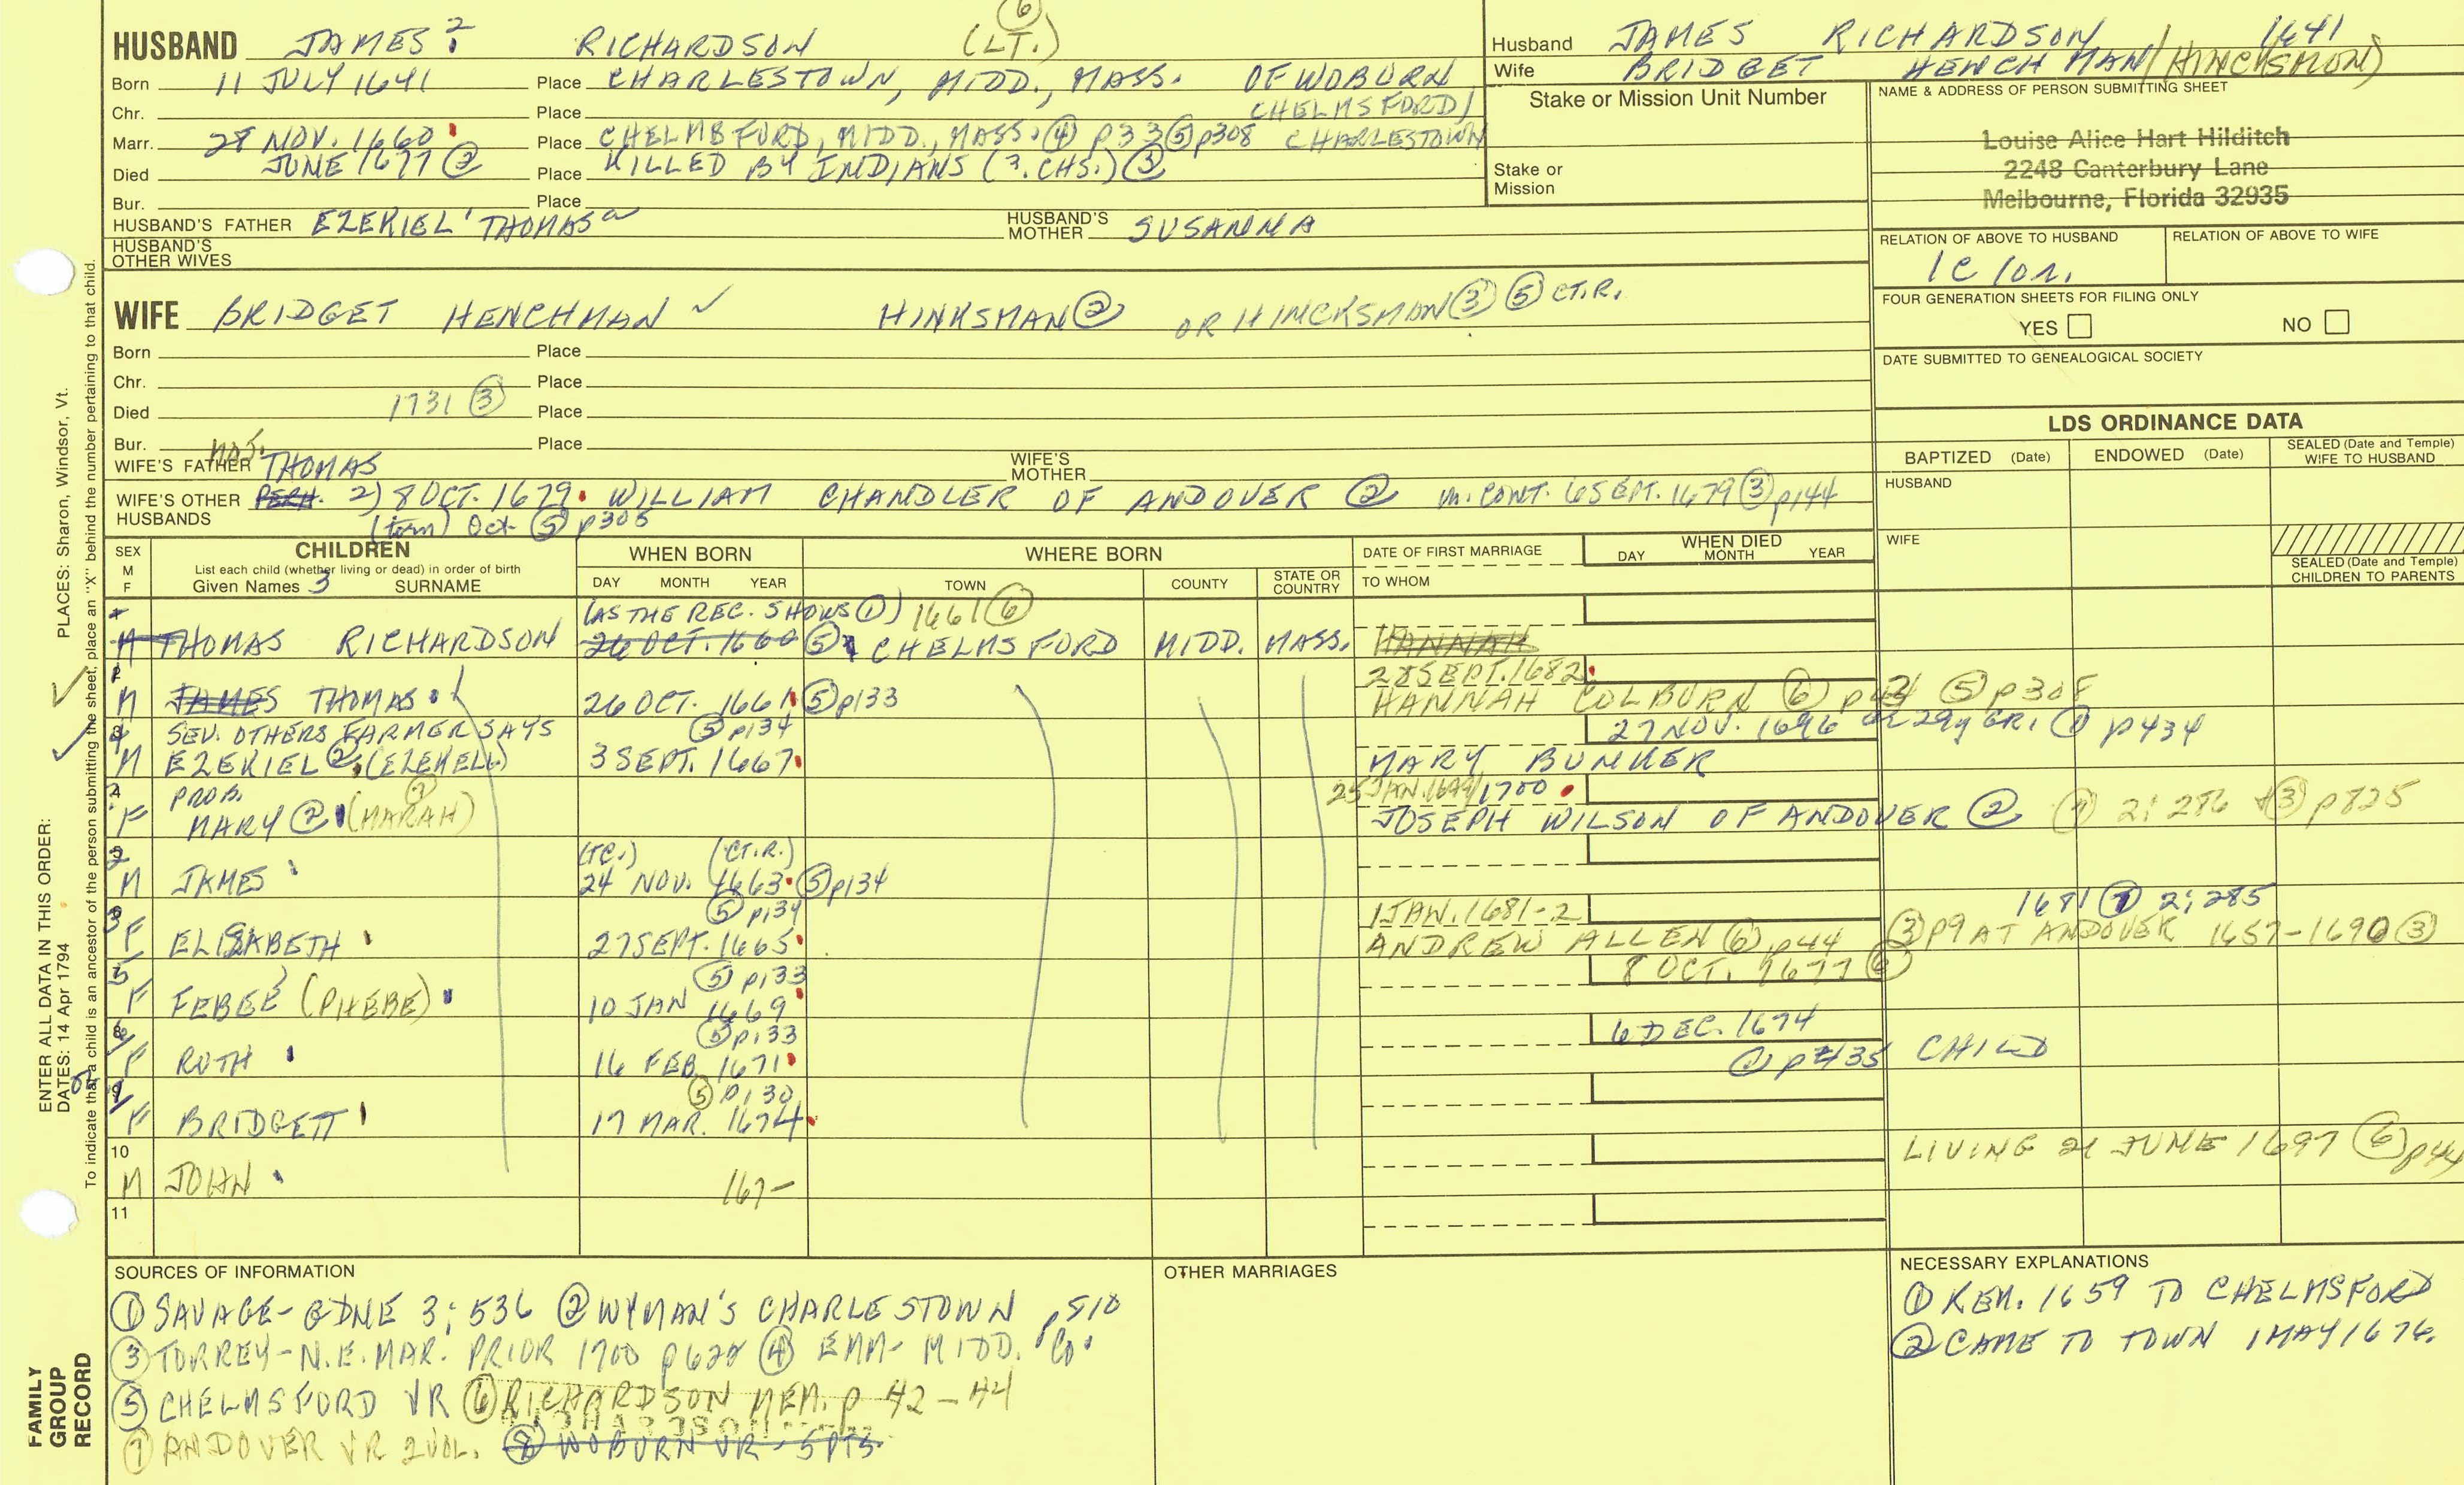 HUSBAND JAMES² RICHARDSON (LT.) ⑥
Born 11 JULY 1641 Place CHARLESTOWN, MIDD., MASS. OF WOBURN
Chr. Place CHELMSFORD/
Marr. 28 NOV. 1660 Place CHELMSFORD, MIDD., MASS. ④ p33 ⑤ p308 CHARLESTOWN
Died JUNE 1677 ② Place KILLED BY INDIANS (3. CHS.) ③
Bur. Place
HUSBAND'S FATHER EZEKIEL¹ THOMASᵃ HUSBAND'S MOTHER SUSANNA
HUSBAND'S OTHER WIVES
Husband JAMES RICHARDSON 1641
Wife BRIDGET HENCHMAN/(HINCKSMON)
Stake or Mission Unit Number
Stake or Mission
NAME & ADDRESS OF PERSON SUBMITTING SHEET
Louise Alice Hart Hilditch
2248 Canterbury Lane
Melbourne, Florida 32935
RELATION OF ABOVE TO HUSBAND RELATION OF ABOVE TO WIFE
1C 10r.
FOUR GENERATION SHEETS FOR FILING ONLY
YES NO
DATE SUBMITTED TO GENEALOGICAL SOCIETY
WIFE BRIDGET HENCHMAN ✓ HINKSMAN ② OR HINCKSMON ③ ⑤ CT.R.
Born Place
Chr. Place
Died 1731 ③ Place
Bur. Place
WIFE'S FATHER THOMAS WIFE'S MOTHER
WIFE'S OTHER HUSBANDS PERH. 2) 8 OCT. 1679 WILLIAM CHANDLER OF ANDOVER ② m. CONT. 6 SEPT. 1679 ③ p144
(torn) Oct ⑤ p305
LDS ORDINANCE DATA
BAPTIZED (Date) ENDOWED (Date) SEALED (Date and Temple) WIFE TO HUSBAND
HUSBAND
WIFE
SEALED (Date and Temple) CHILDREN TO PARENTS
SEX M F CHILDREN WHEN BORN WHERE BORN DATE OF FIRST MARRIAGE WHEN DIED
List each child (whether living or dead) in order of birth DAY MONTH YEAR
Given Names 3 SURNAME DAY MONTH YEAR TOWN COUNTY STATE OR COUNTRY TO WHOM
(AS THE REC. SHOWS ①) 1661 ⑥
M THOMAS RICHARDSON 26 OCT. 1660 ⑤ CHELMSFORD MIDD. MASS. HANNAH
28 SEPT. 1682
M JAMES THOMAS 26 OCT. 1661 ⑤ p133 HANNAH COLBURN ⑥ p44 ⑤ p308
SEV. OTHERS FARMER SAYS ⑤ p134 27 NOV. 1696 p434
M EZEKIEL ② (EZEKELL) 3 SEPT. 1667 MARY BUNKER
PROB. 25 JAN. 1699/1700
F MARY ② (MARAH) JOSEPH WILSON OF ANDOVER ② ⑦ 2:286 ③ p825
(TC.) (CT.R.)
M JAMES 24 NOV. 1663 ⑤ p134
⑤ p134 1 JAN. 1681-2 1681 ⑦ 2:285
F ELIZABETH 27 SEPT. 1665 ANDREW ALLEN ⑥ p44 ③ p9 AT ANDOVER 1657-1690 ③
⑤ p133 8 OCT. 1677
F FEBEE (PHEBE) 10 JAN 1669
⑤ p133 6 DEC. 1674
F RUTH 16 FEB. 1671 p435 CHILD
⑤ p130
F BRIDGETT 17 MAR. 1674
10 LIVING 21 JUNE 1697 ⑥ p44
M JOHN 167-
11
SOURCES OF INFORMATION
① SAVAGE-GDNE 3:536 ② WYMAN'S CHARLESTOWN p 810
③ TORREY-N.E. MAR. PRIOR 1700 p622 ④ EMM- MIDD. Co.
⑤ CHELMSFORD VR ⑥ RICHARDSON MEM. p 42-44
⑦ ANDOVER VR 2 VOL. ⑧ WOBURN VR - 5 PTS.
OTHER MARRIAGES
NECESSARY EXPLANATIONS
① REM. 1659 TO CHELMSFORD
② CAME TO TOWN 1 MAY 1676.
PLACES: Sharon, Windsor, Vt.
ENTER ALL DATA IN THIS ORDER:
DATES: 14 Apr 1794
To indicate that a child is an ancestor of the person submitting the sheet, place an "X" behind the number pertaining to that child.
FAMILY GROUP RECORD